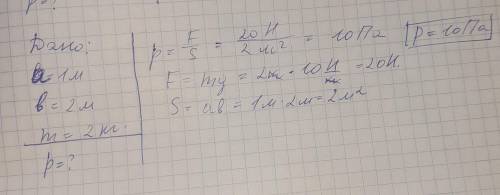 p=?
Дано:
a=1м
b=2м
m=2кг.
p=?
p=F/S=20Н/2м²=10Па p=10Па
F=mg=2кг·10Н/кг=20Н.
S=ab=1м·2м=2м²